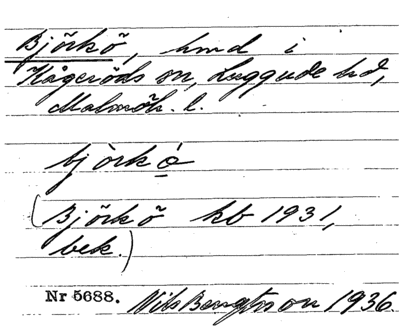 Björkö, hmd i
Kågeröds sn, Luggude hd,
Malmöh. l.
bjö̀rkǿ
(Björkö kb 1931,
bek.)
Nr 5688. Nils Bengtsson 1936.